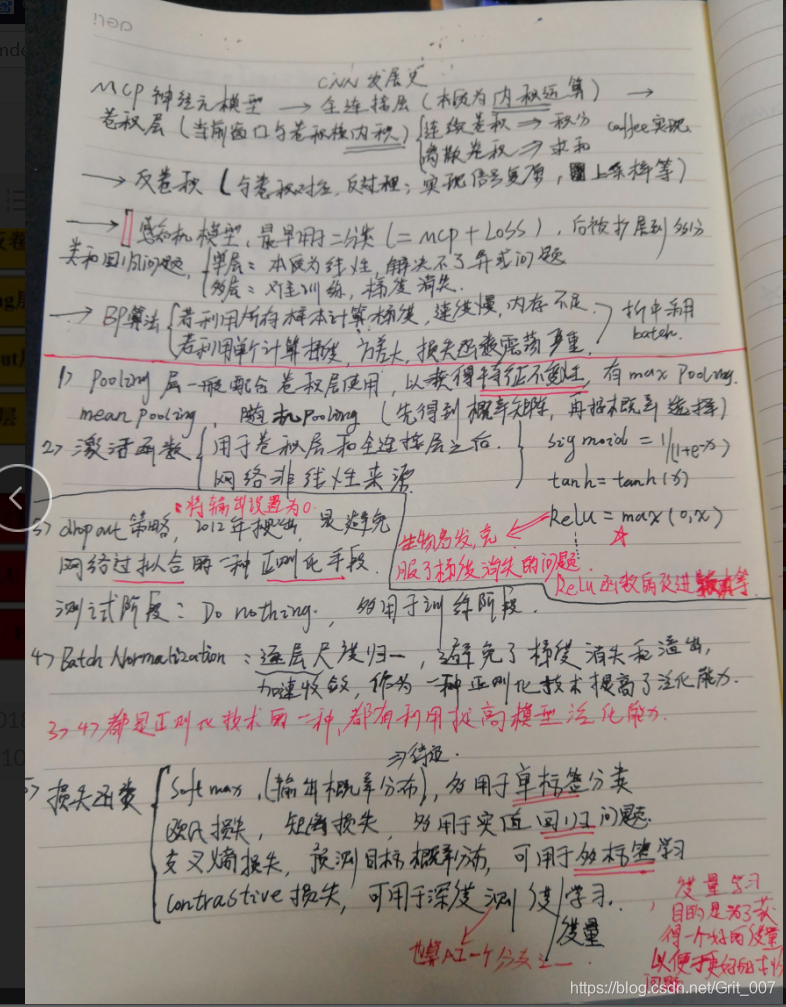 CNN 发展史
MCP 神经元模型 → 全连接层 (本质为内积运算) →
卷积层 (当前窗口与卷积核内积) { 连续卷积 ⇒ 积分 caffee实现
离散卷积 ⇒ 求和
→ 反卷积 (与卷积对应, 反过程; 实现信号复原, 上采样等)
→ 感知机模型, 最早用于二分类 (= MCP + LOSS), 后被扩展到多分
类和回归问题, { 单层: 本质为线性, 解决不了异或问题
多层: 难训练, 梯度消失.
→ BP算法 { 若利用所有样本计算梯度, 速度慢, 内存不足. } 折中采用
若利用单个计算梯度, 方差大, 损失函数震荡严重. batch.
1) Pooling 层一般配合卷积层使用, 以获得特征不变性, 有 max Pooling.
mean pooling, 随机Pooling (先得到概率矩阵, 再按概率选择)
2) 激活函数 { 用于卷积层和全连接层之后. } sigmoid = 1/(1+e^-x)
网络非线性来源 tanh = tanh(x)
Relu = max(0,x)
生物启发, 克
服了梯度消失的问题.
Relu函数的改进 等
将输出设置为0.
3) dropout 策略, 2012年提出, 是避免
网络过拟合的一种正则化手段.
测试阶段: Do nothing., 多用于训练阶段.
4) Batch Normalization: 逐层尺度归一, 避免了梯度消失和溢出,
加速收敛, 作为一种正则化技术提高了泛化能力.
3) 4) 都是正则化技术的一种, 都有利用提高模型泛化能力.
5) 损失函数 { Softmax, (输出概率分布), 多用于单标签分类
欧氏损失, 距离损失, 多用于实值回归问题.
交叉熵损失, 预测目标概率分布, 可用于多标签学习
contrastive 损失, 可用于深度测度学习.
度量
也算AI一个分支之一
度量学习
目的是为了获
得一个好的度量
以便
问题
https://blog.csdn.net/Grit_007